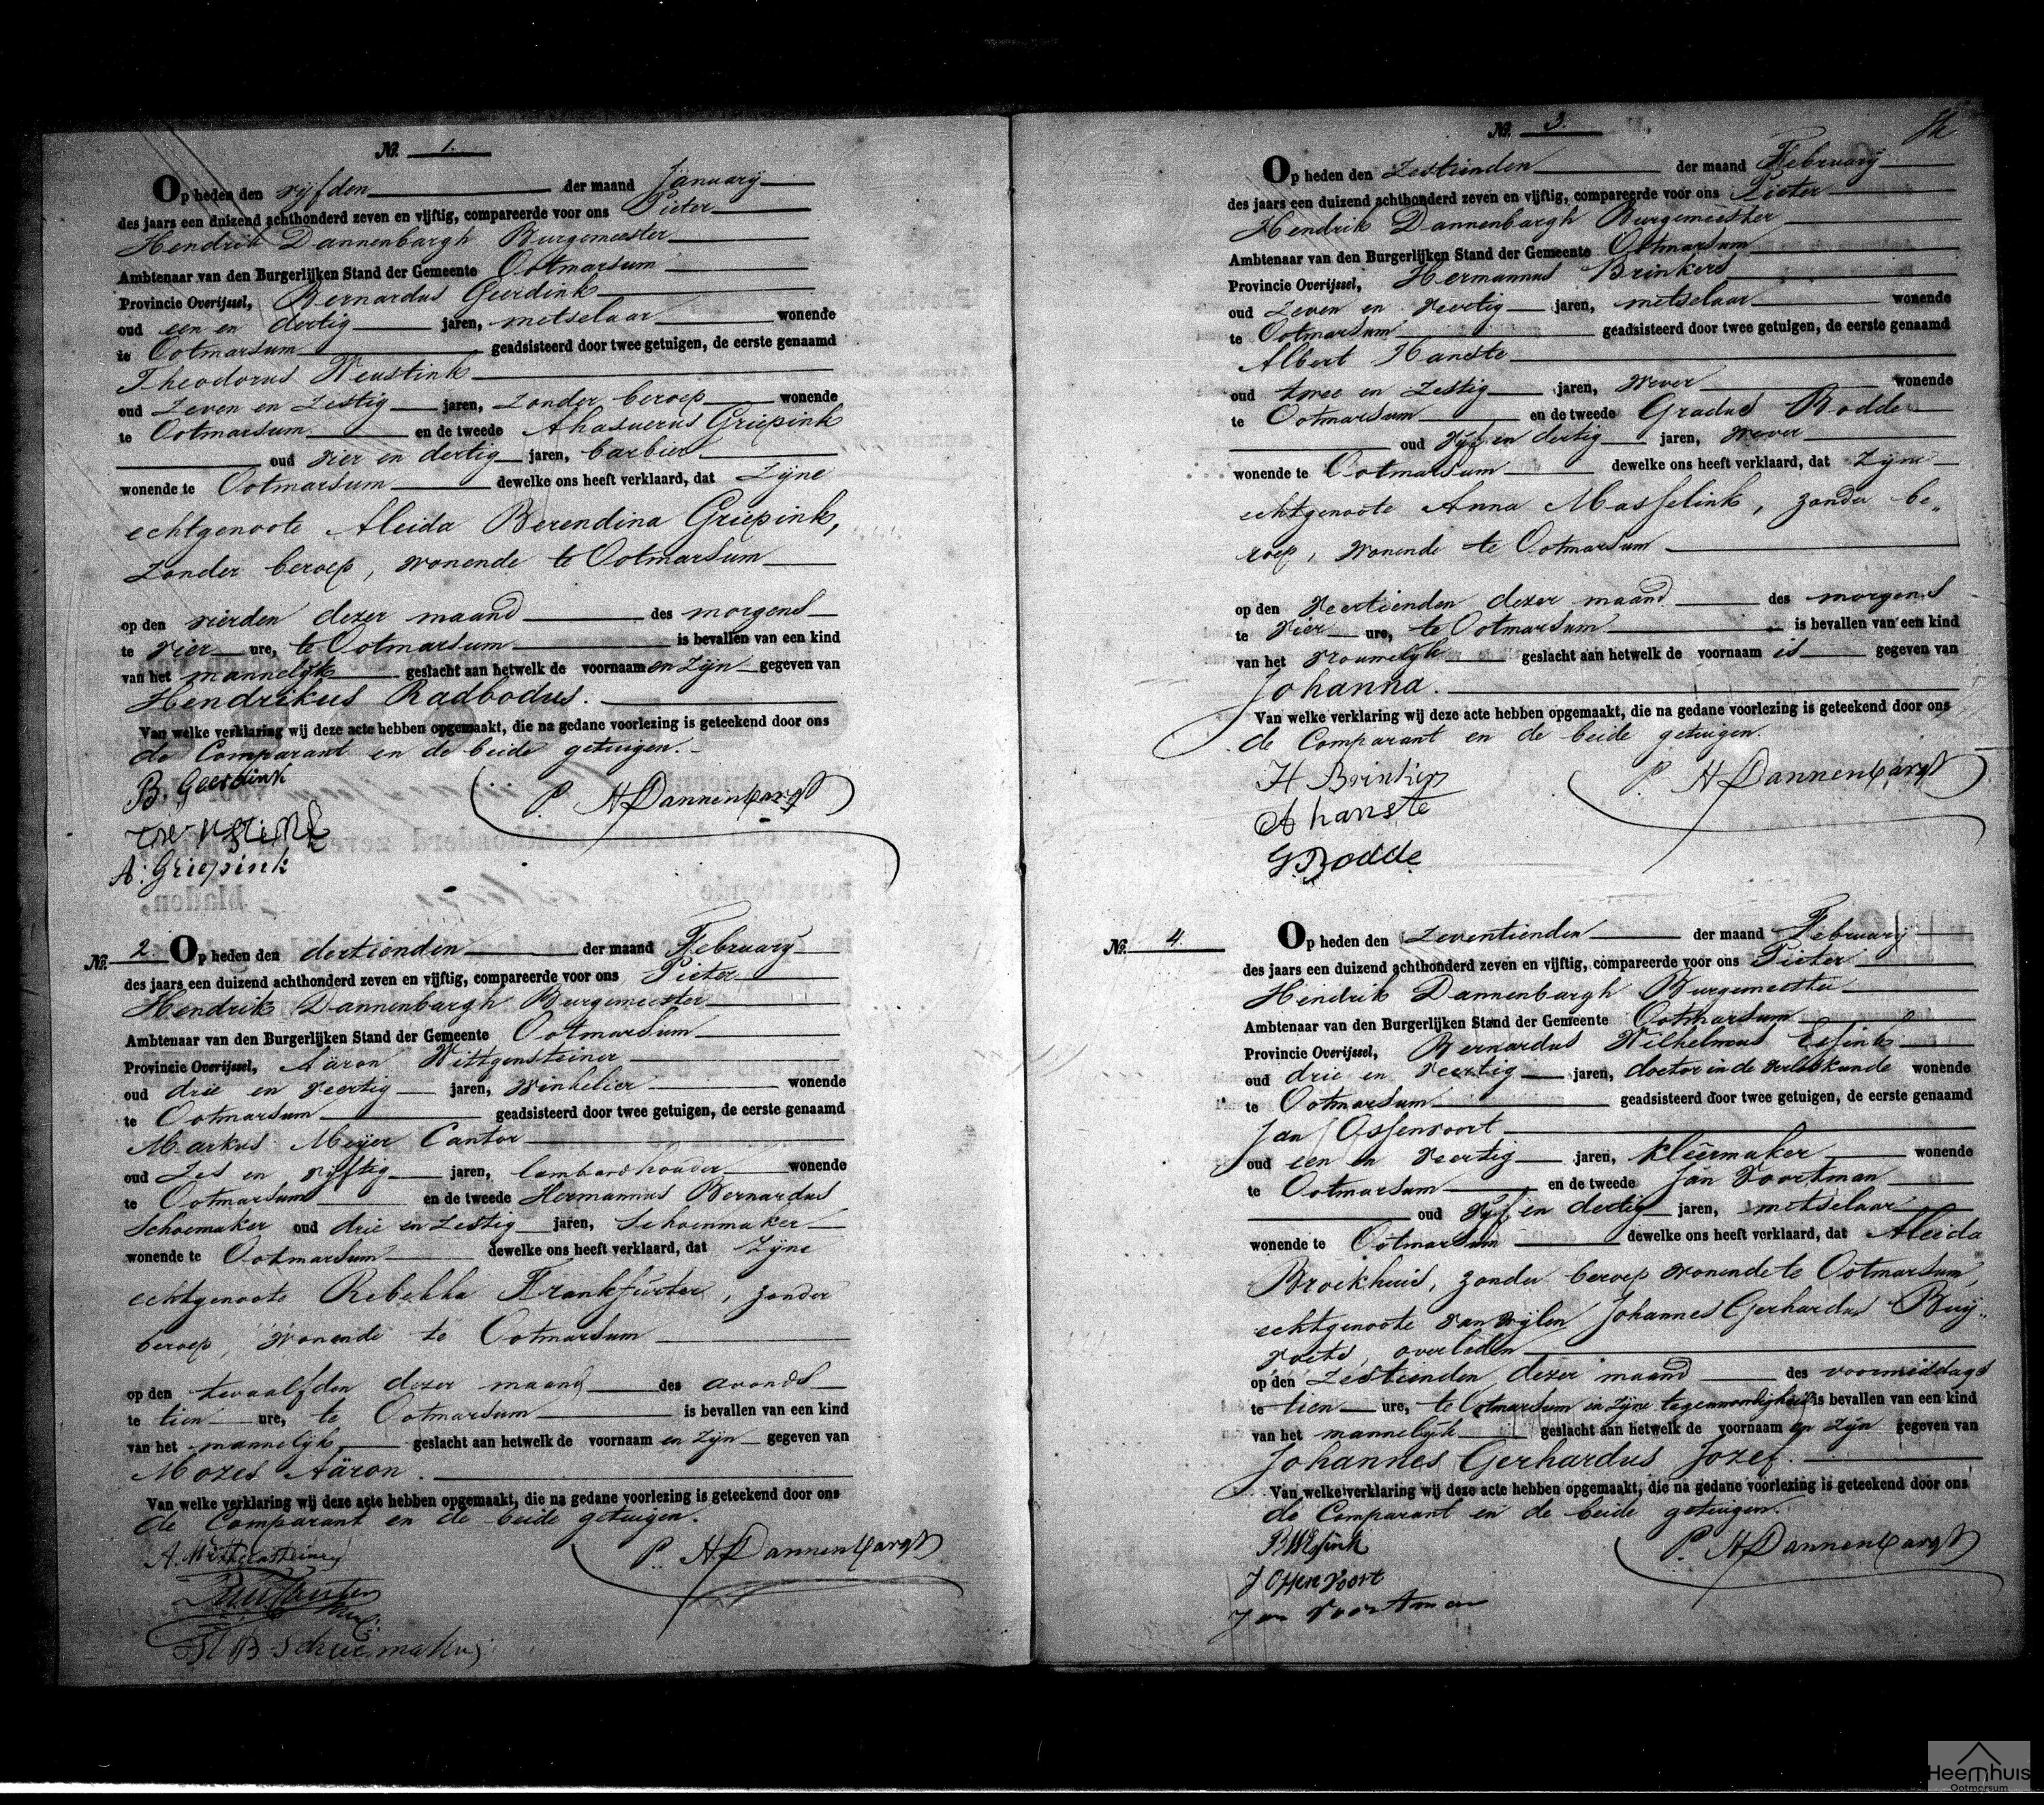 No. 1.
Op heden den vyfden der maand January
des jaars een duizend achthonderd zeven en vijftig, compareerde voor ons Pieter
Hendrik Dannenbargh Burgemeester
Ambtenaar van den Burgerlijken Stand der Gemeente Ootmarsum
Provincie Overijssel, Bernardus Geerdink
oud een en dertig jaren, metselaar wonende
te Ootmarsum geadsisteerd door twee getuigen, de eerste genaamd
Theodorus Weustink
oud zeven en zestig jaren, zonder beroep wonende
te Ootmarsum en de tweede Ahasuerus Griepink
oud vier en dertig jaren, barbier
wonende te Ootmarsum dewelke ons heeft verklaard, dat zyne
echtgenoote Aleida Berendina Griepink,
zonder beroep, wonende te Ootmarsum
op den vierden dezer maand des morgens
te vier ure, te Ootmarsum is bevallen van een kind
van het mannelyk geslacht aan hetwelk de voornaamen zyn gegeven van
Hendrikus Radbodus.
Van welke verklaring wij deze acte hebben opgemaakt, die na gedane voorlezing is geteekend door ons
de Comparant en de beide getuigen.
B Geerdink
P. H Dannenbargh
A. Griepink
No. 2. Op heden den dertienden der maand February
des jaars een duizend achthonderd zeven en vijftig, compareerde voor ons Pieter
Hendrik Dannenbargh Burgemeester
Ambtenaar van den Burgerlijken Stand der Gemeente Ootmarsum
Provincie Overijssel, Aäron Wittgensteiner
oud drie en veertig jaren, winkelier wonende
te Ootmarsum geadsisteerd door twee getuigen, de eerste genaamd
Markus Meyer Cantor
oud zes en vyftig jaren, lombardhouder wonende
te Ootmarsum en de tweede Hermannus Bernardus
Schoemaker oud drie en zestig jaren, schoenmaker
wonende te Ootmarsum dewelke ons heeft verklaard, dat zyne
echtgenoote Rebekka Frankfurter, zonder
beroep, wonende te Ootmarsum
op den twaalfden dezer maand des avonds
te tien ure, te Ootmarsum is bevallen van een kind
van het mannelyk geslacht aan hetwelk de voornaam en zyn gegeven van
Mozes Aäron.
Van welke verklaring wij deze acte hebben opgemaakt, die na gedane voorlezing is geteekend door ons
de Comparant en de beide getuigen.
A. Wittgensteiner
P. H Dannenbargh
H B Schoemaker
No. 3.
Op heden den zestienden der maand February
des jaars een duizend achthonderd zeven en vijftig, compareerde voor ons Pieter
Hendrik Dannenbargh Burgemeester
Ambtenaar van den Burgerlijken Stand der Gemeente Ootmarsum
Provincie Overijssel, Hermannus Brinkers
oud zeven en veertig jaren, metselaar wonende
te Ootmarsum geadsisteerd door twee getuigen, de eerste genaamd
Albert Hanste
oud twee en zestig jaren, wever wonende
te Ootmarsum en de tweede Gradus Bodde
oud vyf en dertig jaren, wever
wonende te Ootmarsum dewelke ons heeft verklaard, dat zyne
echtgenoote Anna Masselink, zonder be„
roep, wonende te Ootmarsum
op den veertienden dezer maand des morgens
te vier ure, te Ootmarsum is bevallen van een kind
van het vrouwelyk geslacht aan hetwelk de voornaam is gegeven van
Johanna.
Van welke verklaring wij deze acte hebben opgemaakt, die na gedane voorlezing is geteekend door ons
de Comparant en de beide getuigen.
H Brinkers
P. H Dannenbargh
A hanste
G Bodde
No. 4. Op heden den zeventienden der maand February
des jaars een duizend achthonderd zeven en vijftig, compareerde voor ons Pieter
Hendrik Dannenbargh Burgemeester
Ambtenaar van den Burgerlijken Stand der Gemeente Ootmarsum
Provincie Overijssel, Bernardus Wilhelmus Essink
oud drie en veertig jaren, doctor in de verloskunde wonende
te Ootmarsum geadsisteerd door twee getuigen, de eerste genaamd
Jan Ossenvoort
oud een en veertig jaren, kleermaker wonende
te Ootmarsum en de tweede Jan Voortman
oud vyf en dertig jaren, metselaar
wonende te Ootmarsum dewelke ons heeft verklaard, dat Aleida
Broekhuis, zonder beroep wonende te Ootmarsum,
echtgenoote van wylen Johannes Gerhardus Buy„
voets, overleden
op den zestienden dezer maand des voormiddags
te tien ure, te Ootmarsum in zyne tegenwoordigheid is bevallen van een kind
van het mannelyk geslacht aan hetwelk de voornaam en zyn gegeven van
Johannes Gerhardus Jozef.
Van welke verklaring wij deze acte hebben opgemaakt, die na gedane voorlezing is geteekend door ons
de Comparant en de beide getuigen.
BWEssink
P. H Dannenbargh
J Ossenvoort
Jan Voortman
Heemhuis
Ootmarsum